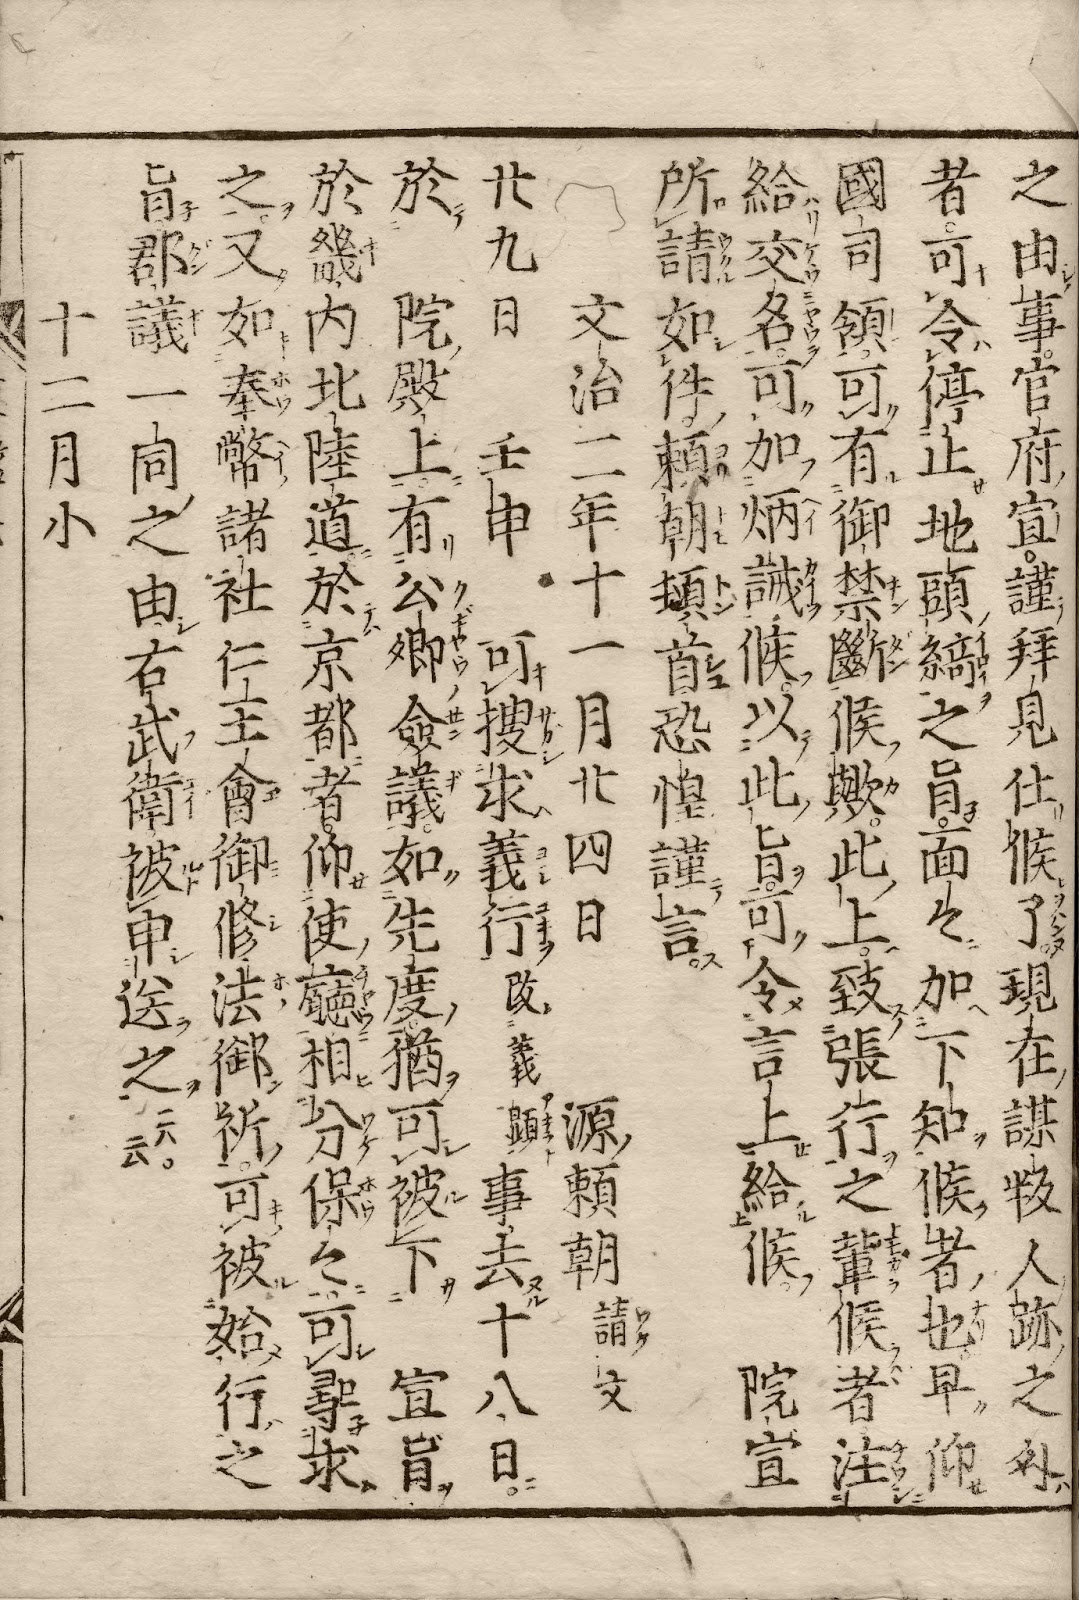 之由事官府宣謹拜見仕候了現在謀叛人跡之外
者可令停止地頭綺之旨面々加下知候者也早仰
國司領可有御禁斷候歟此上致張行之輩候者注
給交名可加炳誡候以此旨可令言上給候　院宣
所請如件頼朝頓首恐惶謹言
文治二年十一月廿四日　源頼朝請文
廿九日　壬申　可捜求義行改義顯事去十八日
於　院殿上有公卿僉議如先度猶可被下　宣旨
於畿内北陸道於京都者仰使廳相分保々可尋求
之又如奉幣諸社仁王會御修法御祈可被始行之
旨郡議一同之由右武衛被申送之云云
十二月小